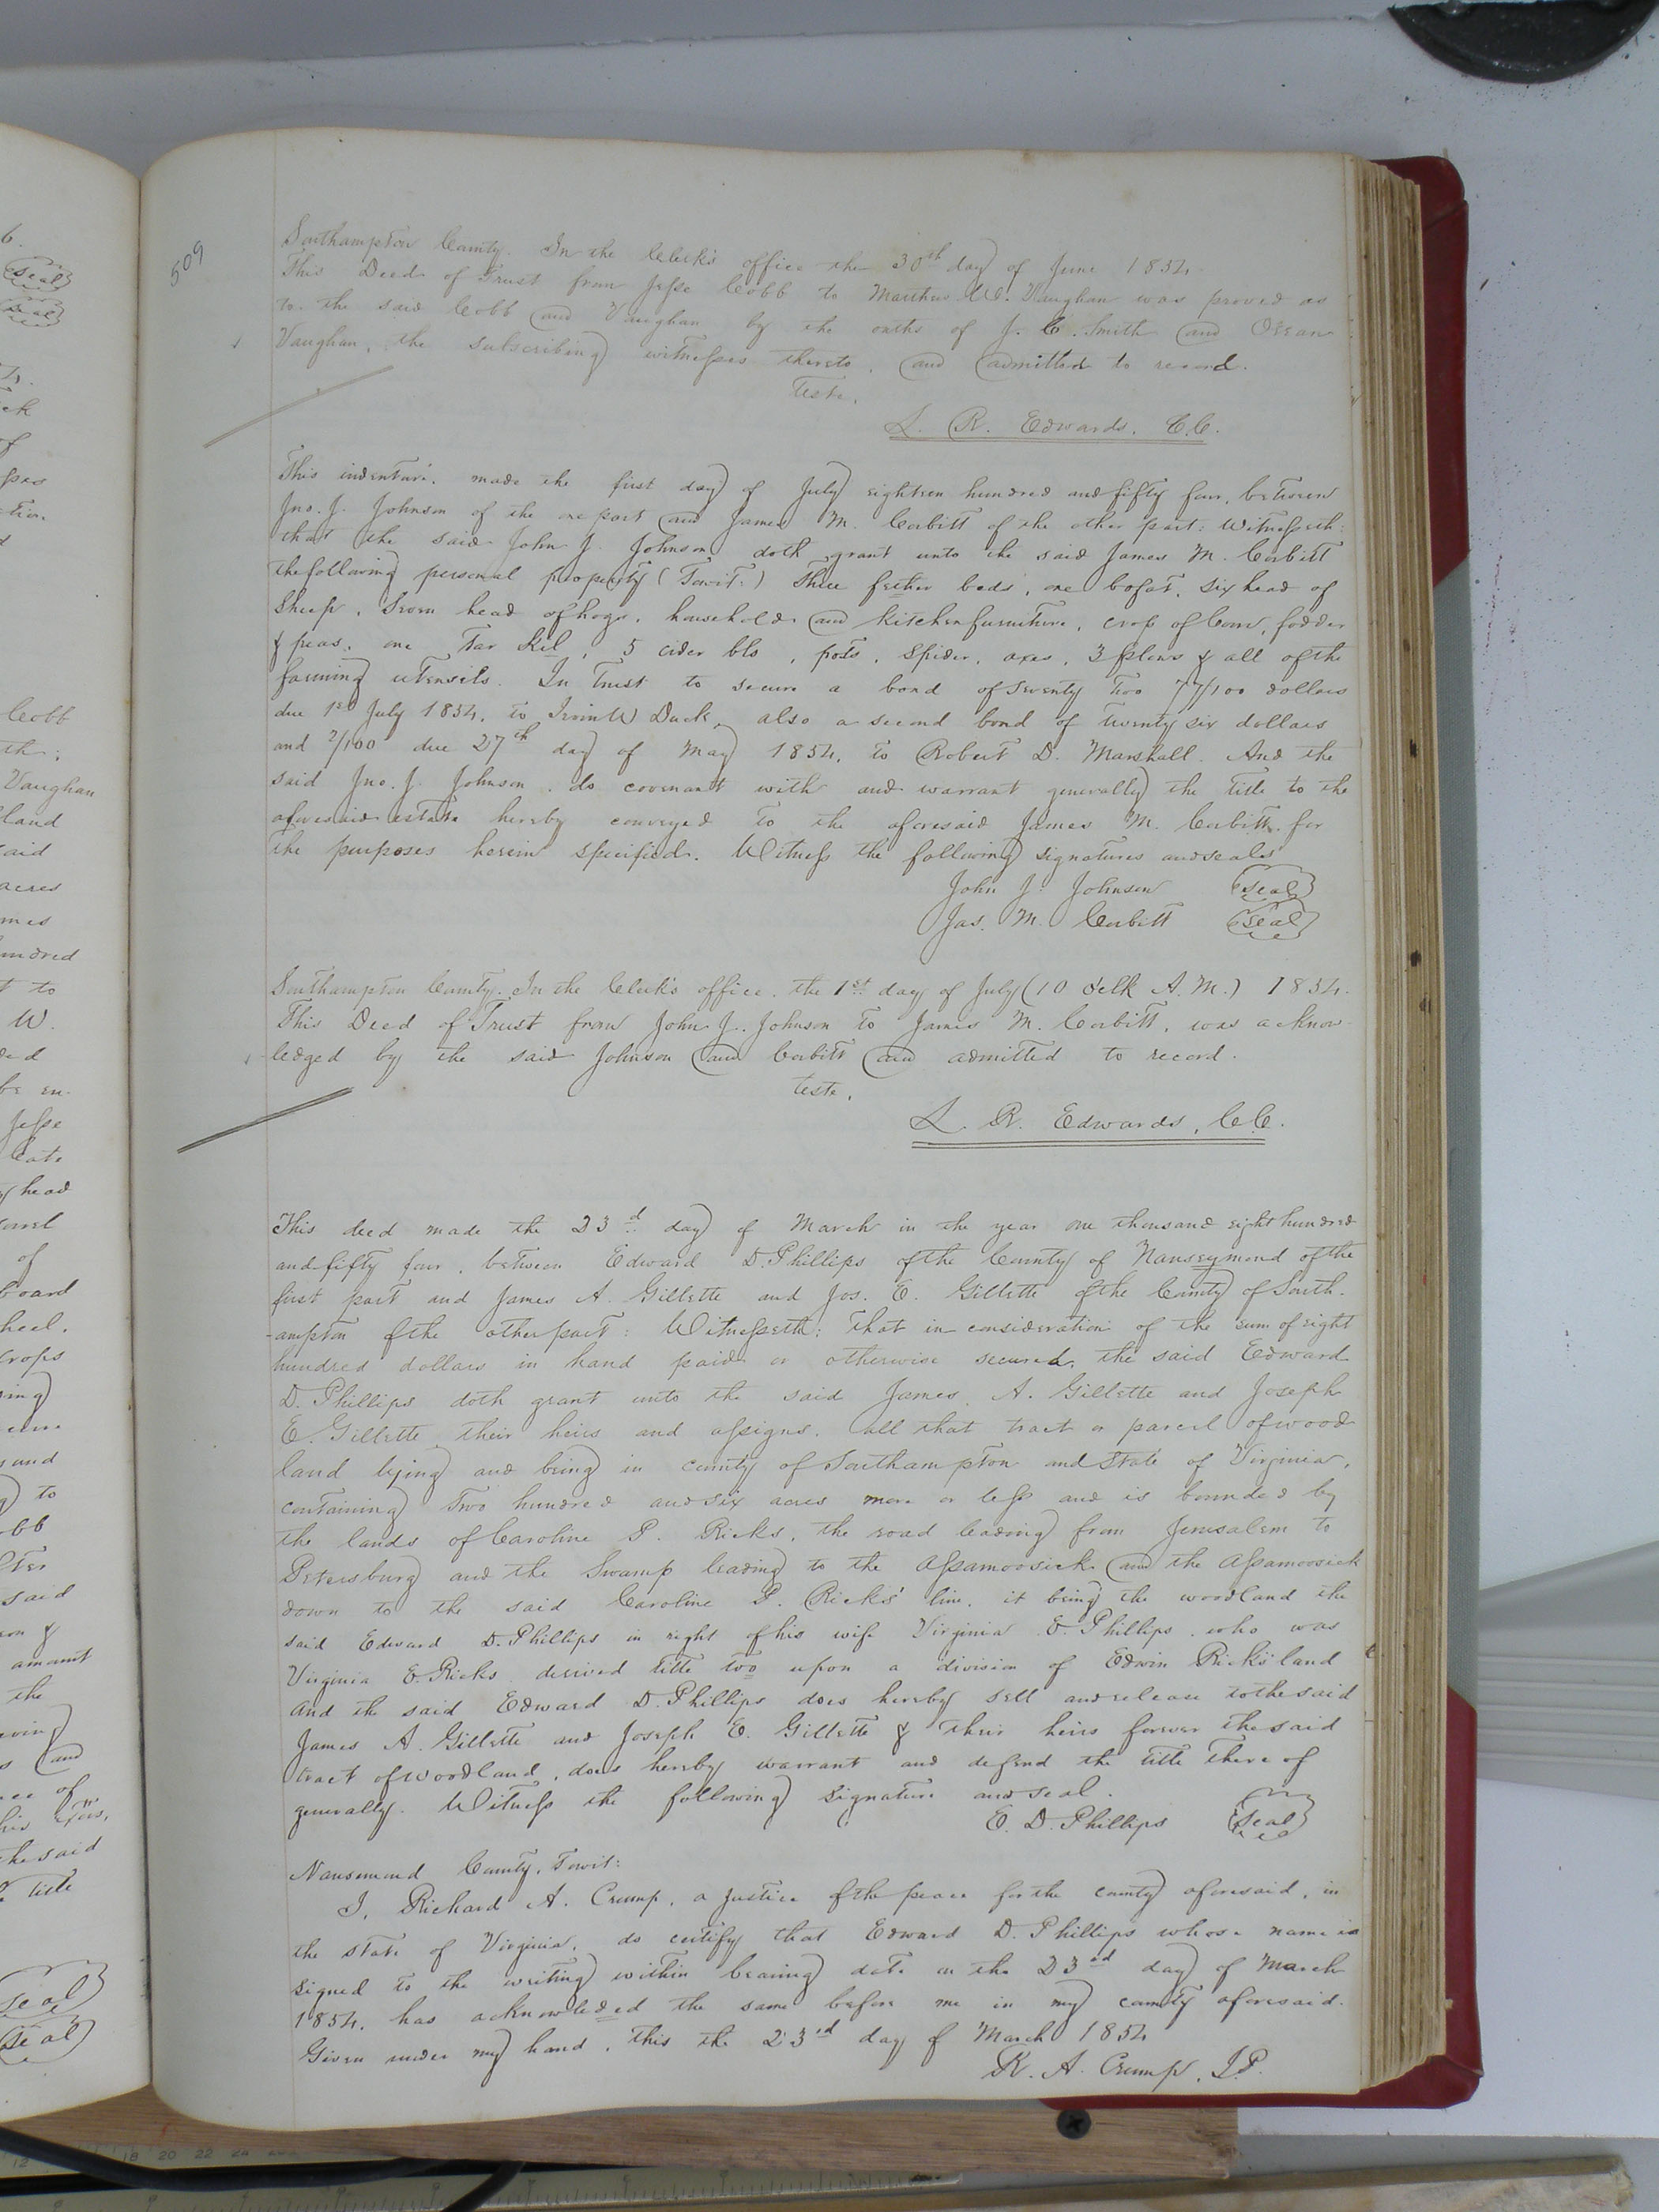 509
Southampton County. In the Clerk's office the 30th day of June 1854.
This Deed of Trust from Jesse Cobb to Matthew W. Vaughan was proved as
to the said Cobb and Vaughan by the oaths of J. C. Smith and
Vaughan, the subscribing witnesses thereto, and admitted to record.
Teste,
L. R. Edwards. C.C.
This indenture, made the first day of July eighteen hundred and fifty four, between
Jno. J. Johnson of the one part and James M. Corbitt of the other part: Witnesseth:
that the said John J. Johnson doth grant unto the said James M. Corbitt
the following personal property (Towit:) Three fether beds, one bofat, six head of
Sheep, Seven head of hogs, household and kitchen furniture, crop of Corn, fodder
& peas, one Tar Kil, 5 cider bls, pots, Spider, axes, 3 plows & all of the
farming utensils. In Trust to secure a bond of Seventy Two 77/100 dollars
due 1st July 1854, to W Duck, also a second bond of twenty six dollars
and 2/100 due 27th day of May 1854, to Robert D. Marshall. And the
said Jno. J. Johnson, do covenant with and warrant generally the title to the
aforesaid estate hereby conveyed to the aforesaid James M. Corbitt for
the purposes herein specified. Witness the following signatures and seals
John J. Johnson (Seal)
Jas. M. Corbitt (Seal)
Southampton County. In the Clerk's office, the 1st day of July (10 Oclk A.M.) 1854.
This Deed of Trust from John J. Johnson to James M. Corbitt, was acknow-
ledged by the said Johnson and Corbitt and admitted to record.
teste,
L. R. Edwards, C.C.
This deed made the 23d day of March in the year one thousand eight hundred
and fifty four, between Edward D. Phillips of the County of Nanseymond of the
first part and James A. Gillette and Jos. E. Gillette of the County of South-
-ampton of the other part: Witnesseth: That in consideration of the sum of eight
hundred dollars in hand paid or otherwise secured, the said Edward
D. Phillips doth grant unto the said James A. Gillette and Joseph
E. Gillette their heirs and assigns, all that tract or parcel of wood
land lying and being in county of Southampton and State of Virginia,
containing Two hundred and six acres more or less and is bounded by
the lands of Caroline P. Ricks, the road leading from Jerusalem to
Petersburg and the Swamp leading to the Assamoosick and the Assamoosick
down to the said Caroline P. Ricks' line, it being the woodland the
said Edward D. Phillips in right of his wife Virginia E. Phillips, who was
Virginia E. Ricks derived title too upon a division of Edwin Ricks' land
And the said Edward D. Phillips does hereby sell and release to the said
James A. Gillette and Joseph E. Gillette & their heirs forever the said
tract of woodland, does hereby warrant and defend the title there of
generally. Witness the following signature and seal.
E. D. Phillips (Seal)
Nansemond County, Towit:
I, Richard A. Crump, a Justice of the peace for the county aforesaid, in
the state of Virginia, do certify that Edward D. Phillips whose name is
signed to the writing within bearing date on the 23rd day of March
1854, has acknowleded the same before me in my county aforesaid.
Given under my hand, this the 23rd day of March 1854
R. A. Crump, J.P.